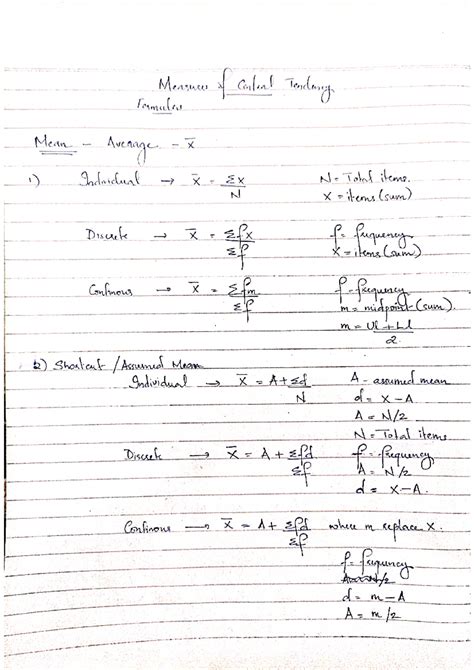 Measures of Central Tendency
Formulas
Mean - Average - x̄
1) Individual → x̄ = Σx/N N = Total items.
x = items (sum)
Discrete → x̄ = Σfx/Σf f = frequency
x = items (sum)
Continous → x̄ = Σfm/Σf f = frequency
m = midpoint (sum).
m = Ul + Ll / 2
2) Shortcut / Assumed Mean
Individual → x̄ = A + Σd/N A = assumed mean
d = x - A
A = N/2
N = Total items
Discrete → x̄ = A + Σfd/Σf f = frequency
A = N/2
d = x - A.
Continous → x̄ = A + Σfd/Σf where m replace x.
f = frequency
d = m - A
A = m/2